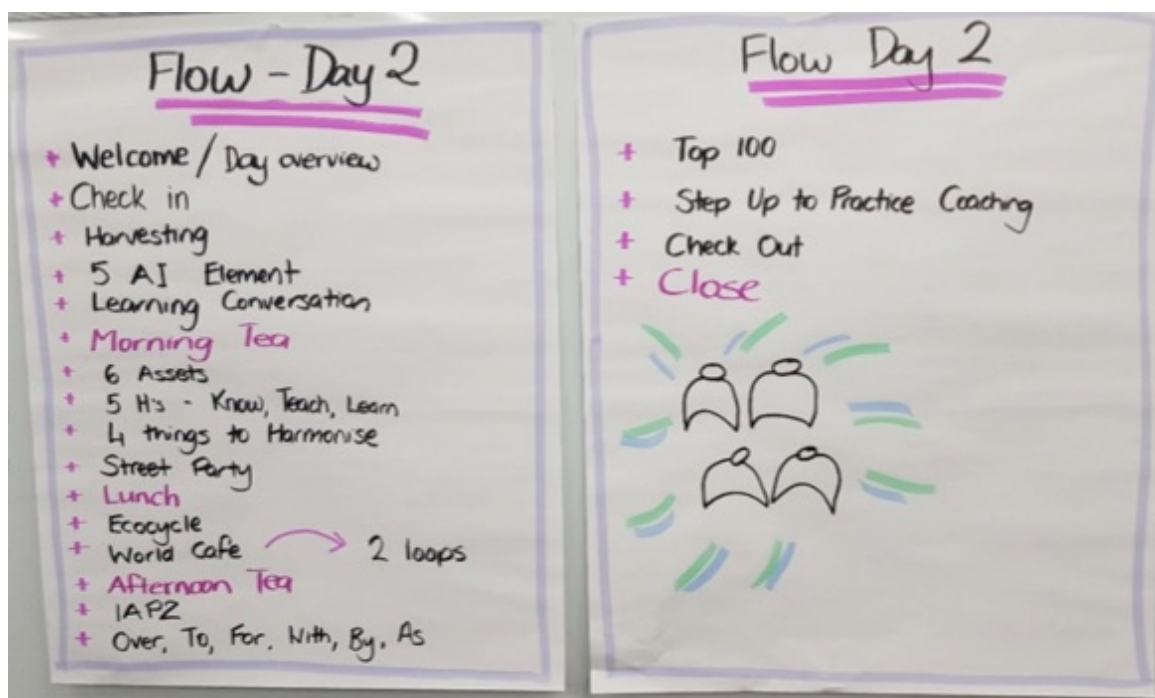 Flow - Day 2
+ Welcome / Day overview
+ Check in
+ Harvesting
+ 5 AI Element
+ Learning Conversation
+ Morning Tea
+ 6 Assets
+ 5 H's - Know, Teach, Learn
+ 4 things to Harmonise
+ Street Party
+ Lunch
+ Ecocycle
+ World Cafe → 2 loops
+ Afternoon Tea
+ IAP2
+ Over, To, For, With, By, As
Flow Day 2
+ Top 100
+ Step Up to Practice Coaching
+ Check Out
+ Close